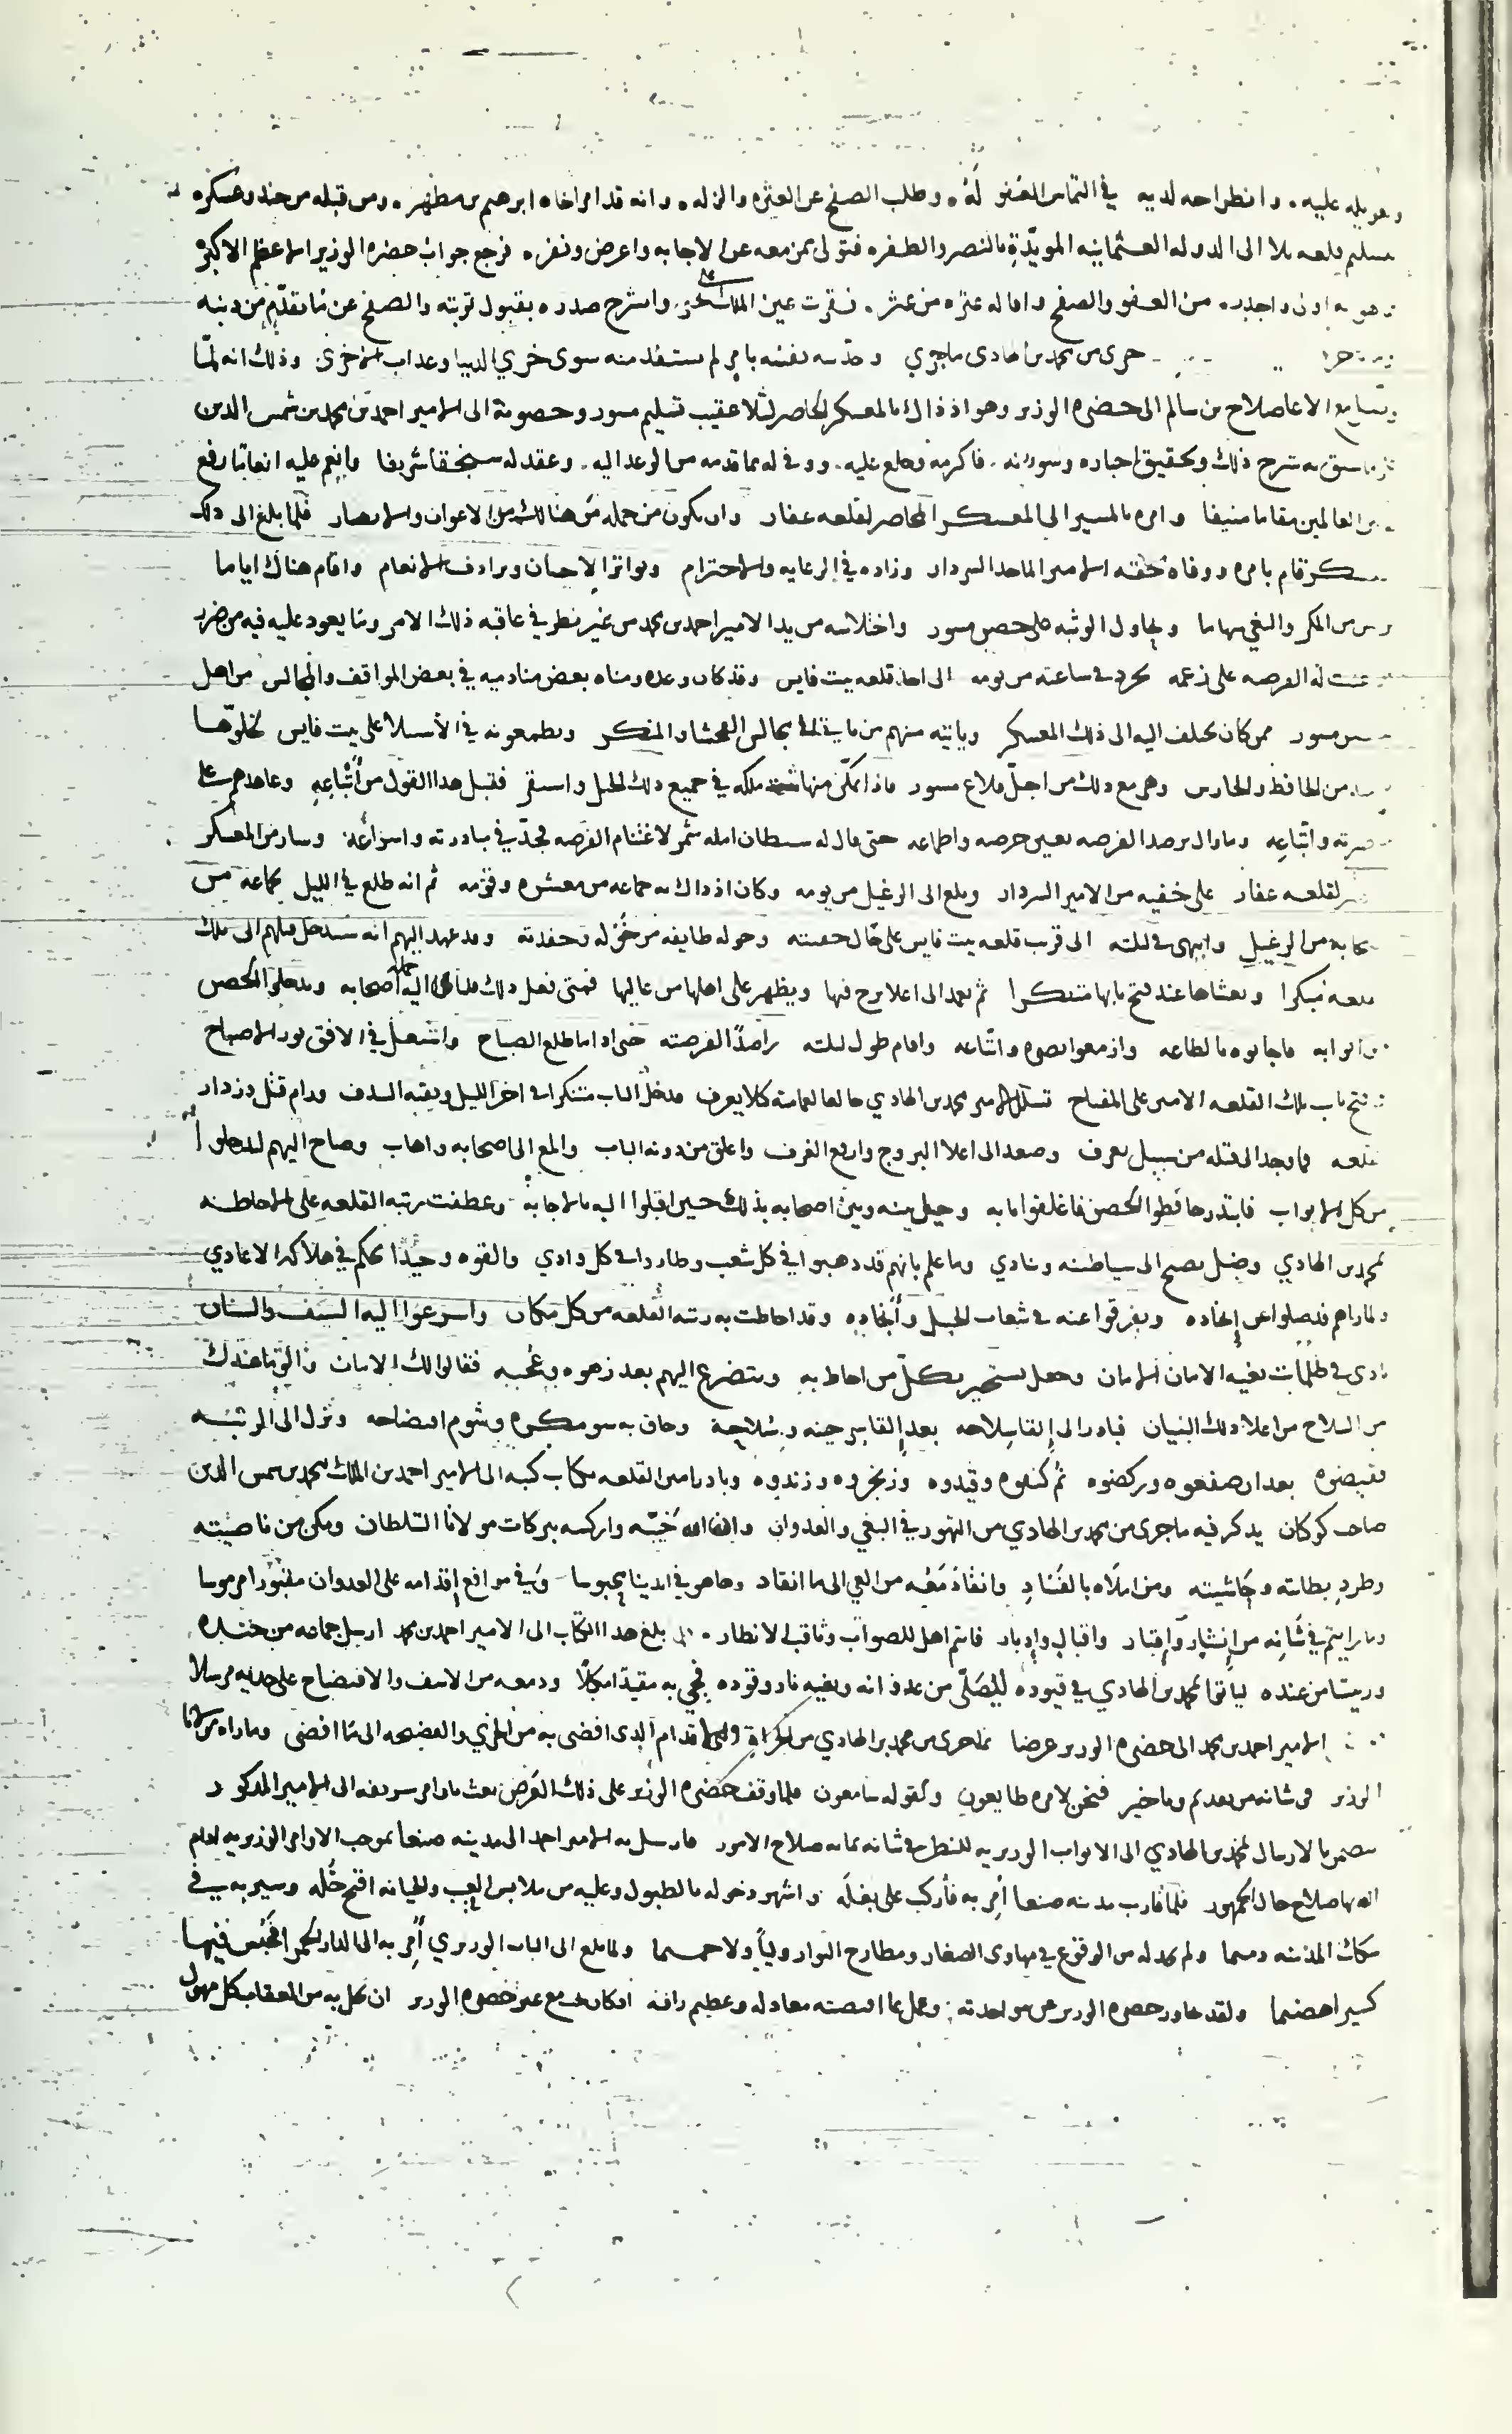 وتعويله عليه، وانطراحه لديه في التماس العفو له، وطلب الصفح عن العثره والزله، وانه قد امر اخاه ابرهيم بن مطهر، ومن قبله من جند وعسكره
بتسليم قلعه ثلا الى الدوله العثمانيه المويّدةِ بالنصر والظفره فتولى بمن معه عن الاجابه واعرض ونفره فرجع جواب حضره الوزير الاعظم الاكبر
هو به اولى واجدر، من العفو والصفح واقاله عثره من عثر، فقرت عين الملك على يحيى وانشرح صدره بقبول توبته والصفح عن ما تقدّم من ذنبه
جرى من محمد بن الهادى ماجرى وحدّثته نفسُه بامرٍ لم يستفد منه سوى خزي الدنيا وعذاب الاخرى وذلك انه لمّا
الاغا صلاح بن سالم الى حضره الوزير وهو اذ ذاك بالمعسكر المحاصر لثلا عقيب تسليم مسور وحصونه الى الامير احمد بن محمد بن شمس الدين
ما سبق به شرح ذلك وتحقيق اخباره وسورته، فاكرمه وخلع عليه، ووفى له بما قدمه من الوعد اليه، وعقد له سنجقا شريفا وانعم عليه انعاما رفع
العالمين مقاما منيفا وامره بالمسير الى المعسكر المحاصر لقلعه عفار وان يكون من جمله من هنالك من الاعوان والانصار فلما بلغ الى ذلك
قام بامره ووفاه حقه الامير الماجد السردار وزاده في الرعايه والاحترام وتواتر الاحسان وترادف الانعام واقام هناك اياما
من المكر والبغي سهاما ويحاول الوثبه على حصن مسور واختلاسه من يد الامير احمد بن محمد من غير نظر في عاقبه ذلك الامر وما يعود عليه فيه من ضرر
عنت له الفرصه على زعمه تجرد في ساعته من يومه الى اخذ قلعه بيت فايس وقد كان وعده ومناه بعض مناديه في بعض المواقف والمجالس من اهل
مسور ممن كان يختلف اليه الى ذلك المعسكر وياتيه منهم من ياتي مجالس الفحشا والمنكر ويطمعونه في الاستيلا على بيت فايس لخلوّها
من الحافظ والحارس وهي مع ذلك من اجلّ قلاع مسور فاذا تمكّن منها ثبت ملكه في جميع ذلك الجبل واستقر فقبل هذا القول من اتباعه وعاهدهم على
واتّباعه وما زال يرصد الفرصه بعين حرصه واطماعه حتى قال له شيطان امله شمّر لاغتنام الفرصه فجدّ في مبادرته واسراعه وسار من المعسكر
لقلعه عفار على خفيه من الامير السردار وبلغ الى الرغيل من يومه وكان اذ ذاك به جماعه من معشره وقومه ثم انه طلع في الليل بجماعه من
من الرغيل وانتهى في ليلته الى قرب قلعه بيت فايس على حال خفيته وحوله طايفه من خوله وحفدته وقد عهد اليهم انه سيدخل قبلهم الى تلك
القلعه مبكرا ويغشاها عند فتح بابها متنكرا ثم يعمد الى اعلا برج فيها ويظهر على اهلها من عاليها فمتى فعل ذلك فليات اليه جمله اصحابه ويدخلوا الحصن
فاجابوه بالطاعه وازمعوا نصره واتّباعه واقام طول ليلته راصدًا لفرصته حتى اذا ما طلع الصباح واشتعل في الافق نور الاصباح
فتح باب تلك القلعه الامير على المفتاح تسلل الامير محمد بن الهادي خالعا لعمامته كلا يعرف فدخل الباب متنكرا في اخر الليل وبقيه السدف ورام قتل دزدار
القلعه فما وجد الى قتله من سبيل يعرف وصعد الى اعلا البروج وارفع الغرف واغلق من دونه الباب والمع الى اصحابه واهاب وصاح اليهم ليدخلوا
من كل الابواب فابتدر حافظوا الحصن فاغلقوا بابه وحيل بينه وبين اصحابه بذلك حين اقبلوا اليه بالاجابه وعطفت رتبه القلعه على الاحاطه
لمحمد بن الهادي وضل يصيح الى شياطينه وينادي وما علم بانهم قد ذهبوا في كل شعب وطاروا في كل وادي والقوه وحيدًا يحكم في هلاكه الاعادي
ولما راهم فد ضلوا عن انجاده وتفرقوا عنه في شعاب الجبل وانجاده وقد احاطت به رتبه القلعه من كل مكان واسرعوا اليه السيف والسنان
نادى في ظلمات بغيه الامان الامان وجعل يستجير بكلّ من احاط به ويتضرع اليهم بعد زهوه وعُجبه فقالوا لك الامان والق ما عندك
من السلاح من اعلا ذلك البنيان فبادر الى القا سلاحه بعد القا سرجينه وسلاحه وحاق به سو مكره وشوم افتضاحه ونزل الى الرتبه
فقبضوه بعد ان صفعوه وركضوه ثم كتفوه وقيدوه وزنجروه وزندوه وبادر امير القلعه بكتاب كتبه الى الامير احمد بن الملك محمد بن شمس الدين
صاحب كوكبان يذكر فيه ماجرى من محمد بن الهادي من التهور في البغي والعدوان وان الله خيّبه واركسه ببركات مولانا السلطان ومكن من ناصيته
وطرد بطانته وحاشيته ومن املاه بالفساد وانفاذ مَعَه من الغي الى ما انقاد وهاهو في ايدينا محبوسا وفي مواقع اقدامه على العدوان مقبورا مرموسا
وما رايتم في شانه من انشار واقبار واقبال وادبار فانتم اهل للصواب وثاقب الانظار، فلما بلغ هذا الكتاب الى الامير احمد بن محمد ارسل جماعه من جنده
ورتبا من عنده لياتوا بمحمد بن الهادي في قيوده ليصلى من عدوانه وبغيه نار وقوده فجي به مقيدا مكبّلا ودمعه من الاسف والافتضاح على خديه مرسلا
الامير احمد بن محمد الى حضره الوزير عرضا بما جرى من محمد بن الهادي من الجراه والاقدام الذى افضى به من الخزي والفضيحه الى ما افضى وما راه مولانا
الوزير في شانه من تقديم وتاخير فنحن لامره طايعون ولقوله سامعون فلما وقف حضره الوزير على ذلك العرض بعث باوامر شريفه الى الامير المذكور
تتضمن بالارسال لمحمد بن الهادي الى الابواب الوزيريه للنظر في شانه بما به صلاح الامور فارسل به الامير احمد الى مدينه صنعا بموجب الاوامر الوزيريه
بها صلاح حال الجمهور فلما قارب مدينه صنعا اُمِر به فاُركب على بغله واشهر دخوله بالطبول وعليه من ملابس العيب والخيانه اقبح حُلّه وسير به في
سكك المدينه ذميما ولم يجد له من الوقوع في مهاوى الصغار ومطارح البوار وليًا ولا حميما ولما بلغ الى الباب الوزيري اُمر به الى الدار الحمرا فحُبس فيها
كسيرا هضيما ولقد تجاوز حضره الوزير عن مواخذته، وعمل بما اقتضته معادله وعظيم رافته اذ كان من عفو حضره الوزير ان يحل به من العقاب كل مهول